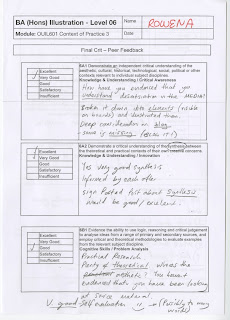 BA (Hons) Illustration - Level 06
Name
ROWENA
Module: OUIL601 Context of Practice 3
Date
Final Crit – Peer Feedback
BA1 Demonstrate an independent critical understanding of the
aesthetic, cultural, historical, technological, social, political or other
contexts relevant to individual subject disciplines.
Knowledge & Understanding / Critical Awareness
Excellent
Very Good
Good
Satisfactory
Insufficient
How have you evidenced that you
understand in the MEDIA?
Broken it down into elements (visible
on boards) and illustrated them.
Deep consideration on blog
- some is missing
BA2 Demonstrate a critical understanding of the synthesis between
the theoretical and practical contexts of their own creative concerns
Knowledge & Understanding / Innovation
Excellent
Very Good
Good
Satisfactory
Insufficient
Yes very good synthesis
informed by each other
sign Posted Post about synthesis
would be good/excellent.
BB1 Evidence the ability to use logic, reasoning and critical judgement
to analyse ideas from a range of primary and secondary sources, and
employ critical and theoretical methodologies to evaluate examples
from the relevant subject discipline.
Cognitive Skills / Problem Analysis
Excellent
Very Good
Good
Satisfactory
Insufficient
Practical Research
Plenty of theoretical wheres the
You havent
evidenced that you have been looking
at source material
V. good self evaluation (Possibly to many
words)